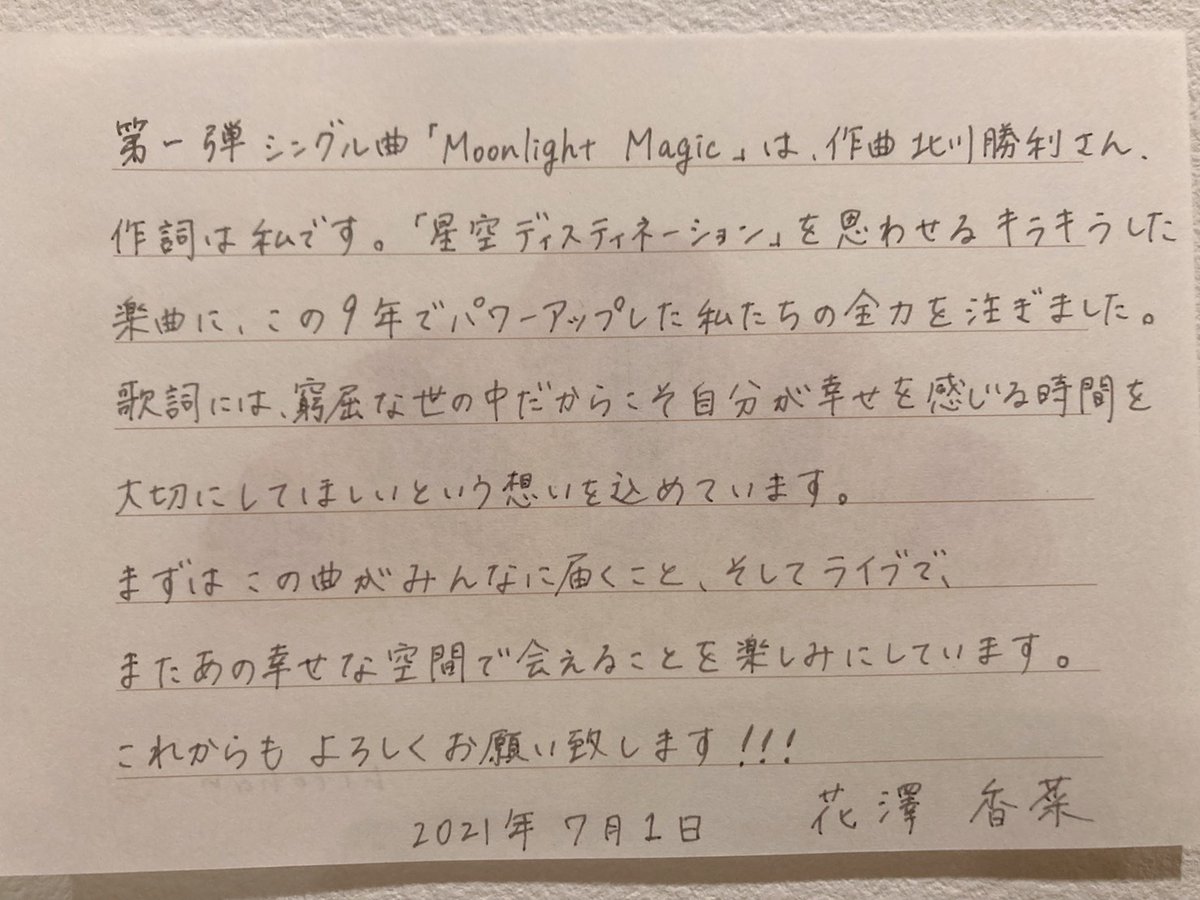 第一弾シングル曲「Moonlight Magic」は、作曲北川勝利さん、
作詞は私です。「星空ディスティネーション」を思わせるキラキラした
楽曲に、この9年でパワーアップした私たちの全力を注ぎました。
歌詞には、窮屈な世の中だからこそ自分が幸せを感じる時間を
大切にしてほしいという想いを込めています。
まずはこの曲がみんなに届くこと、そしてライブで、
またあの幸せな空間で会えることを楽しみにしています。
これからもよろしくお願い致します!!!
2021年7月1日 花澤 香菜